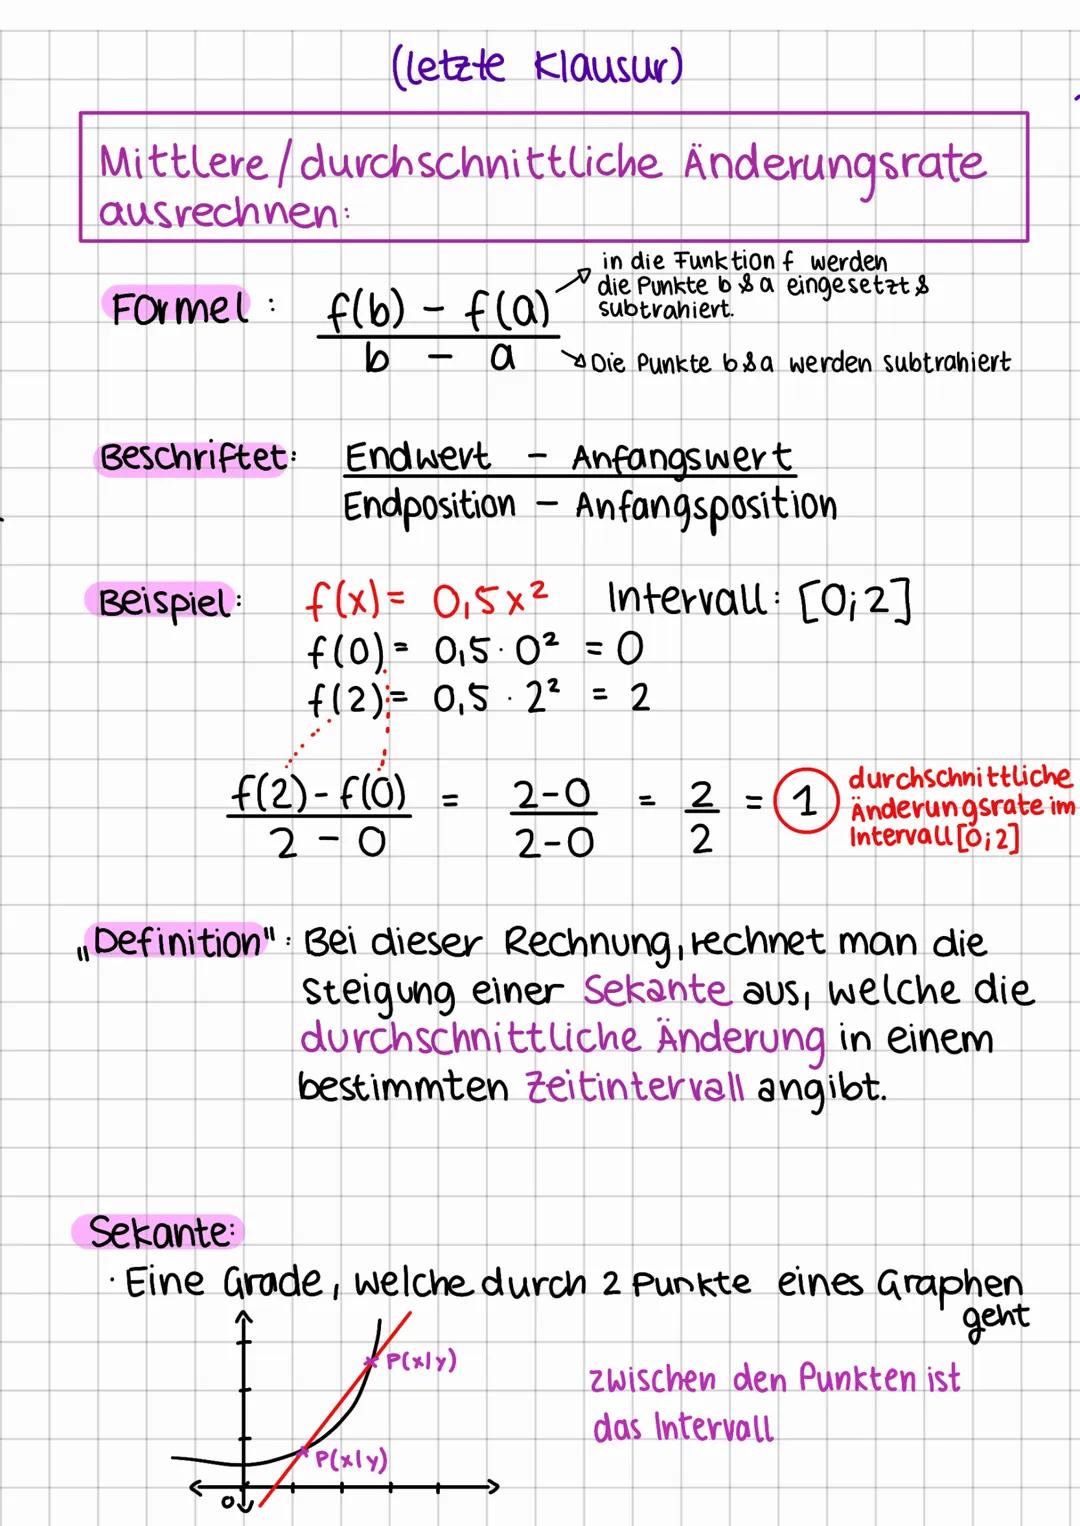 (Letzte Klausur)
Mittlere/durchschnittliche Änderungsrate
ausrechnen:
Formel: f(b) - f(a)
b - a
in die Funktion f werden
die Punkte b & a eingesetzt &
subtrahiert.
Die Punkte b & a werden subtrahiert
Beschriftet: Endwert - Anfangswert
Endposition - Anfangsposition
Beispiel: f(x)= 0,5x² Intervall: [0;2]
f(0)= 0,5·0² = 0
f(2)= 0,5·2² = 2
f(2)-f(0) = 2-0 = 2 = 1
2-0 2-0 2
durchschnittliche
Änderungsrate im
Intervall [0;2]
„Definition": Bei dieser Rechnung, rechnet man die
Steigung einer Sekante aus, welche die
durchschnittliche Änderung in einem
bestimmten Zeitintervall angibt.
Sekante:
· Eine Grade, welche durch 2 Punkte eines Graphen
geht
P(x|y)
zwischen den Punkten ist
das Intervall
P(x|y)
0